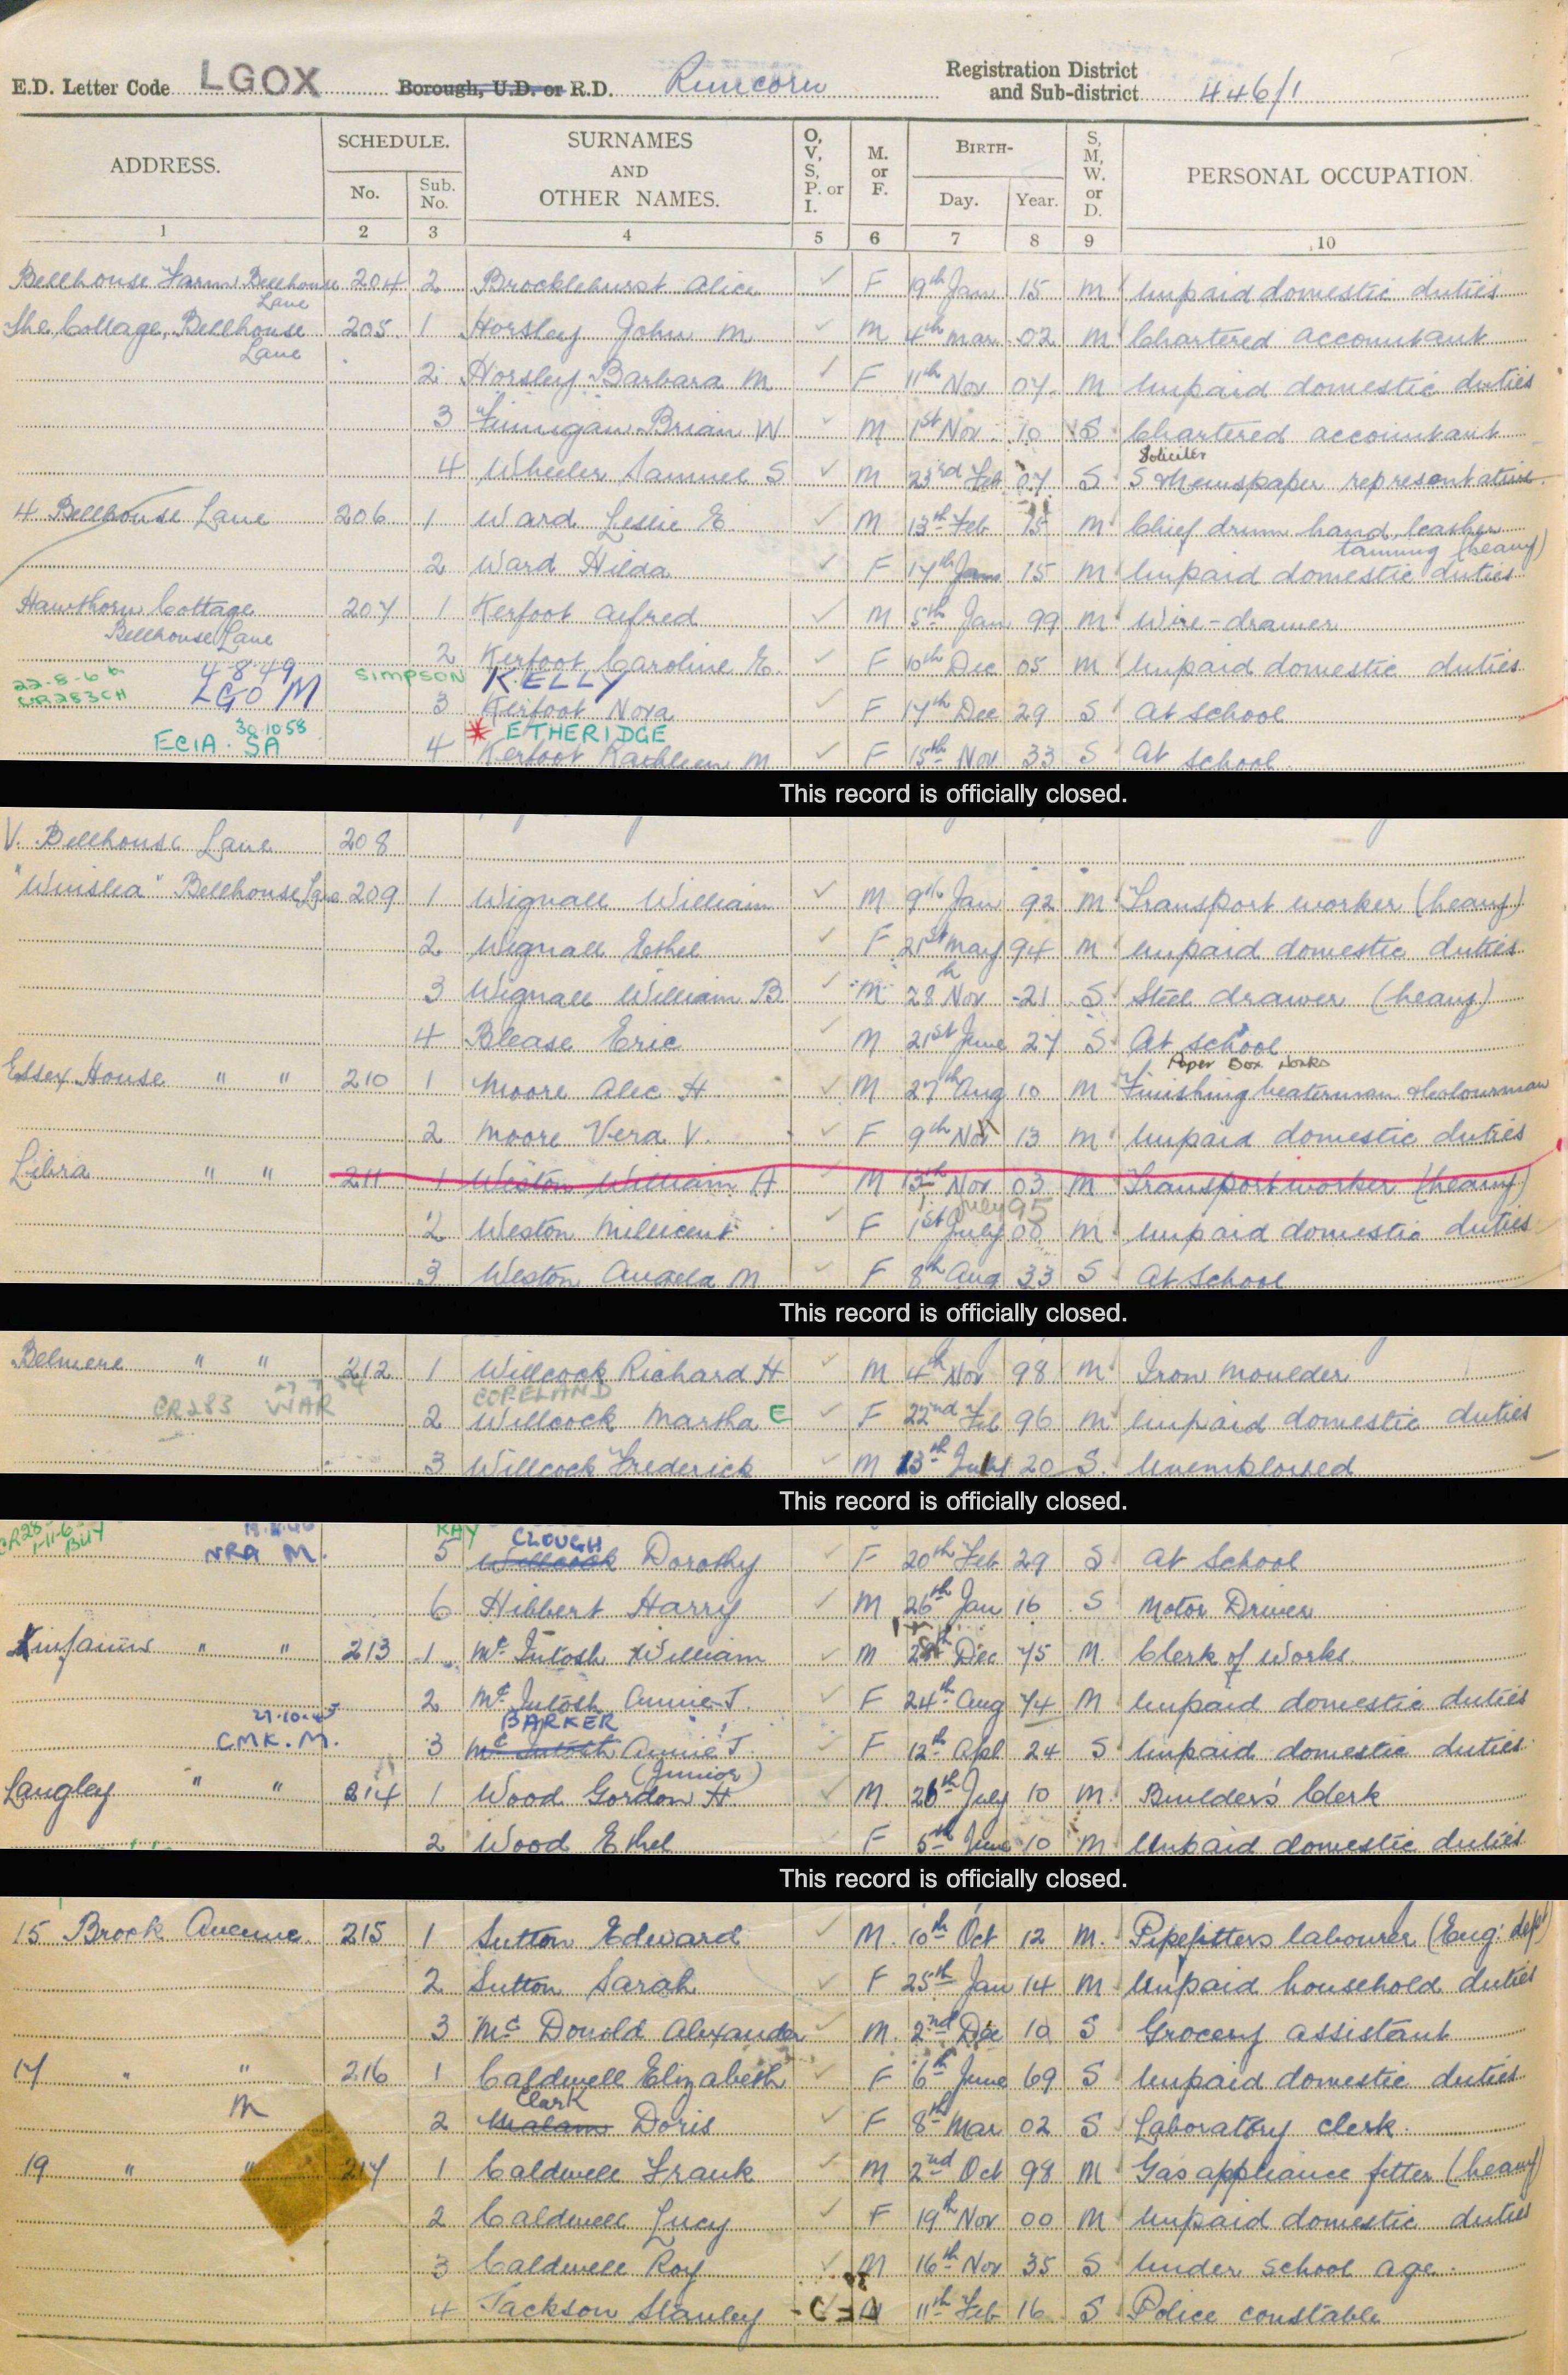 E.D. Letter Code LGOX Borough, U.D. or R.D. Runcorn Registration District and Sub-district 446/1
ADDRESS. SCHEDULE. No. Sub. No. SURNAMES AND OTHER NAMES. O, V, S, P. or I. M. or F. BIRTH- Day. Year. S, M, W. or D. PERSONAL OCCUPATION.
1 2 3 4 5 6 7 8 9 10
Bellhouse Farm Bellhouse Lane 204 2 Brocklehurst Alice ✓ F 19th Jan 15 M Unpaid domestic duties
The Cottage, Bellhouse Lane 205 1 Horsley John M ✓ M 4th Mar 02 M Chartered accountant
2 Horsley Barbara M ✓ F 11th Nov 07 M Unpaid domestic duties
3 Finnigan Brian W ✓ M 1st Nov 10 S Chartered accountant
Soliciter
4 Wheeler Samuel S ✓ M 23rd Feb 07 S Newspaper representative
4 Bellhouse Lane 206 1 Ward Leslie E ✓ M 13th Feb 15 M Chief drum hand, leather tanning (heavy)
2 Ward Hilda ✓ F 17th Jan 15 M Unpaid domestic duties
Hawthorn Cottage Bellhouse Lane 207 1 Kerfoot Alfred ✓ M 5th Jan 99 M Wire-drawer
2 Kerfoot Caroline E. ✓ F 10th Dec 05 M Unpaid domestic duties
22-8-6 CR283CH 4-8-49 LGO M SIMPSON KELLY
3 Kerfoot Nora ✓ F 17th Dec 29 S At school
30.10.58 ECIA. SA * ETHERIDGE
4 Kerfoot Kathleen M ✓ F 15th Nov 33 S At school
This record is officially closed.
V. Bellhouse Lane 208
"Winslea" Bellhouse Lane 209 1 Wignall William ✓ M 9th Jan 92 M Transport worker (heavy)
2 Wignall Ethel ✓ F 21st May 94 M Unpaid domestic duties
3 Wignall William B ✓ M 28th Nov 21 S Steel drawer (heavy)
4 Blease Eric ✓ M 21st June 27 S At school
Paper Box Works
Essex House " " 210 1 Moore Alec H ✓ M 27th Aug 10 M Finishing beaterman & colourman
2 Moore Vera V. ✓ F 9th Nov 13 M Unpaid domestic duties
Libra " " 211 1 Weston William A ✓ M 13th Nov 03 M Transport worker (heavy)
July 95
2 Weston Millicent ✓ F 1st July 08 M Unpaid domestic duties
3 Weston Angela M ✓ F 8th Aug 33 S At School
This record is officially closed.
Belmere " " 212 1 Willcock Richard H ✓ M 4th Nov 98 M Iron moulder
CR283 WAR COPELAND
2 Willcock Martha E ✓ F 22nd Feb 96 M Unpaid domestic duties
3 Willcock Frederick ✓ M 13th July 20 S. Unemployed
This record is officially closed.
NRA M. RAY CLOUGH
5 Willcock Dorothy ✓ F 20th Feb 29 S At School
6 Hibbert Harry ✓ M 26th Jan 16 S Motor Driver
Kinfauns " " 213 1 McIntosh William ✓ M Dec 75 M. Clerk of Works.
2 McIntosh Annie J. ✓ F 24th Aug 74 M Unpaid domestic duties
CMK. M. BARKER
3 McIntosh Annie J. (Junior) F 12th Apl 24 S Unpaid domestic duties
Langley " " 214 1 Wood Gordon H. ✓ M. 26th July 10 M. Builder's Clerk
2 Wood Ethel F 5th June 10 M Unpaid domestic duties
This record is officially closed.
15 Brook Avenue. 215 1 Sutton Edward ✓ M. 10th Oct 12 M. Pipefitters labourer (Eng: dept)
2 Sutton Sarah ✓ F 25th Jan 14 M Unpaid household duties
3 McDonold Alexander ✓ M. 2nd Dec 10 S Grocery assistant
17 " " 216 1 Caldwell Elizabeth ✓ F 6th June 69 S Unpaid domestic duties
M Clark
2 Malam Doris ✓ F 8th Mar 02 S Laboratory clerk.
19 " " 217 1 Caldwell Frank ✓ M 2nd Oct 98 M Gas appliance fitter (heavy)
2 Caldwell Lucy ✓ F 19th Nov 00 M Unpaid domestic duties
3 Caldwell Roy ✓ M 16th Nov 35 S Under school age.
4 Jackson Stanley M 11th Feb 16 S Police constable